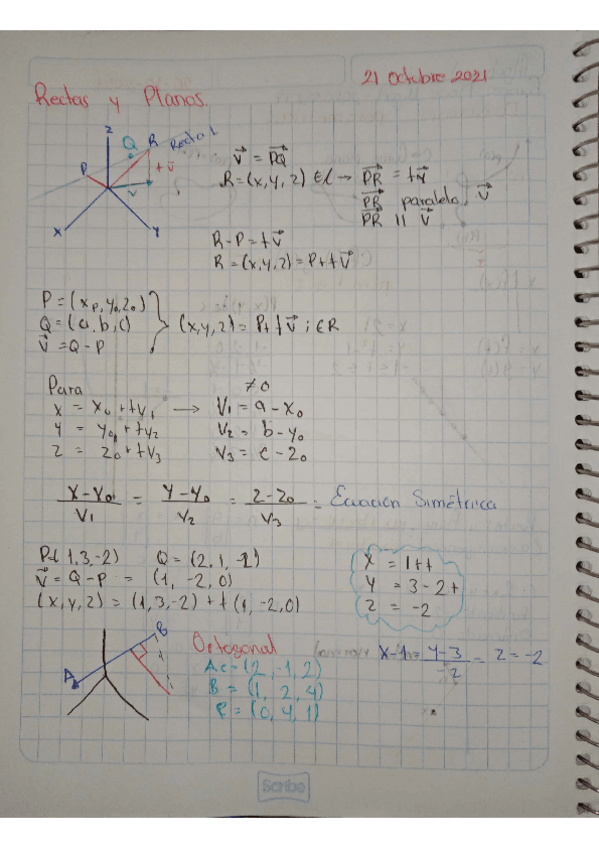 21 Octubre 2021
Rectas y Planos.
z
Q
R
Recta L
P
+v⃗
v
x
y
v⃗ = PQ⃗
R = (x, y, z) ∈ L → PR⃗ = tv⃗
PR⃗ paralelo v⃗
PR⃗ || v⃗
R - P = tv⃗
R = (x, y, z) = P + tv⃗
P = (xp, y0, z0)
Q = (a, b, c)
v⃗ = Q - P
(x, y, z) = P + tv⃗ ; ∈ R
Para
≠ 0
x = x0 + tv1 → V1 = a - x0
y = y0 + tv2 V2 = b - y0
z = z0 + tv3 V3 = c - z0
x - x0 / V1 = y - y0 / V2 = z - z0 / V3 = Ecuación Simétrica
P = (1, 3, -2) Q = (2, 1, -2)
v⃗ = Q - P = (1, -2, 0)
(x, y, z) = (1, 3, -2) + t(1, -2, 0)
x = 1 + t
y = 3 - 2t
z = -2
B
A
Ortogonal
A = (2, -1, 2)
B = (1, 2, 4)
C = (0, 4, 1)
x - 1 = y - 3 / -2 = z = -2
Scribe